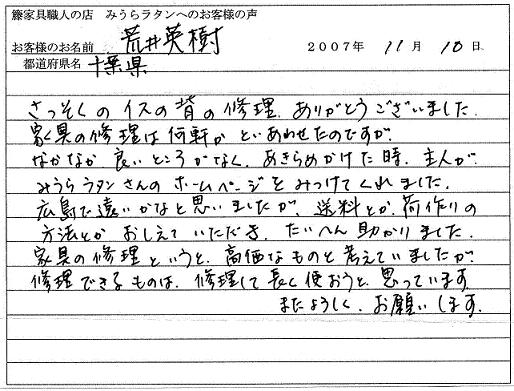 籐家具職人の店　みうらラタンへのお客様の声
お客様のお名前　荒井英樹　2007年 11月 10日
都道府県名　千葉県
さっそくのイスの背の修理、ありがとうございました。
家具の修理は何軒かといあわせたのですが、
なかなか良いところがなく、あきらめかけた時、主人が
みうらラタンさんのホームページをみつけてくれました。
広島で遠いかなと思いましたが、送料とか荷作りの
方法とかおしえていただき、たいへん助かりました。
家具の修理というと、高価なものと考えていましたが、
修理できるものは、修理して長く使おうと思っています。
またよろしく、お願いします。